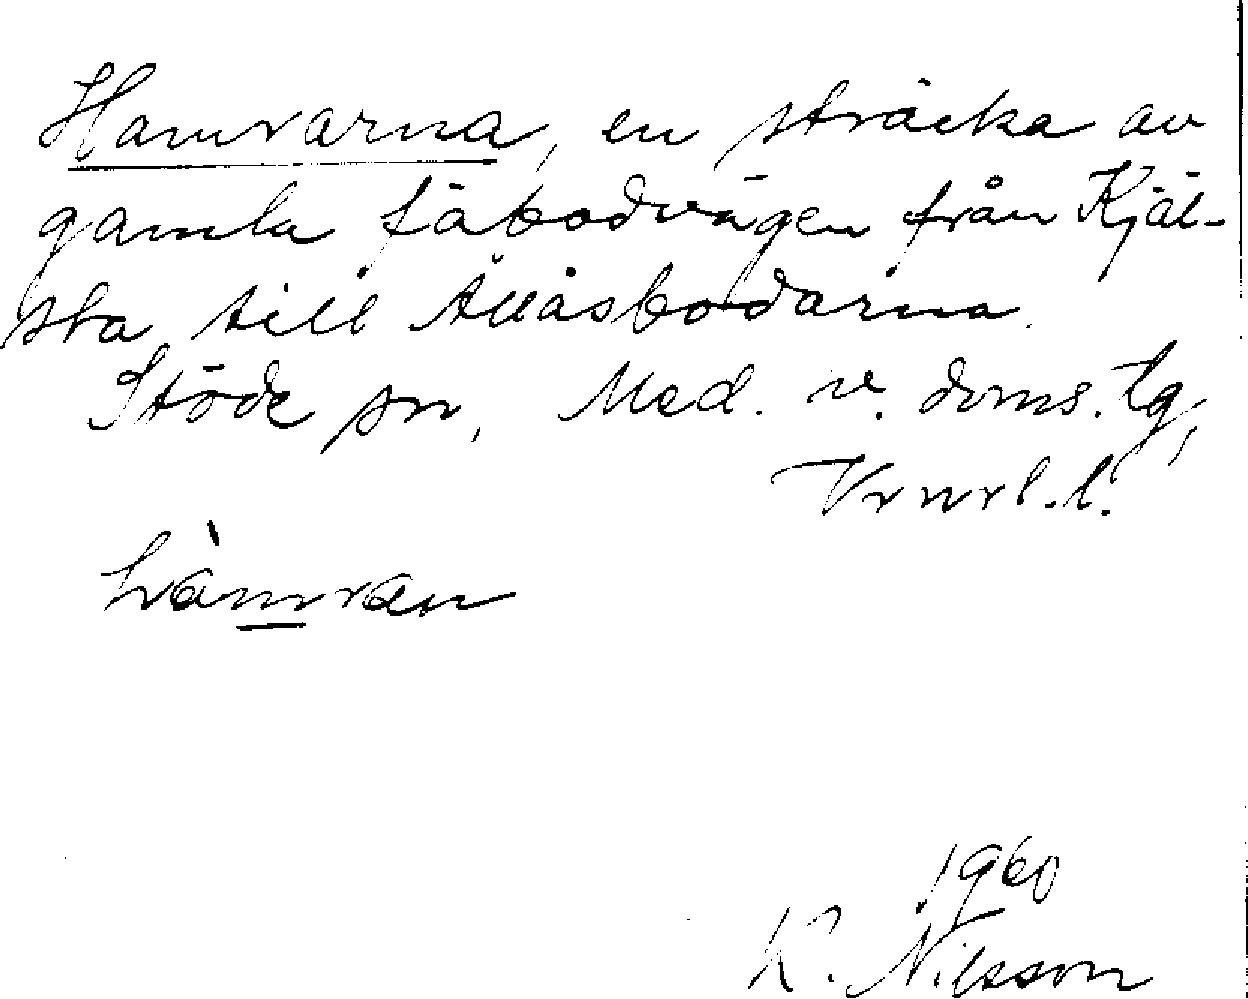 Hamrarna, en sträcka av
gamla fäbodvägen från Kjäl-
sta till Ällåsbodarna.
Stöde sn, Med. v. doms. tg,
Vrnrl. l.
hàmran
1960
K. Nilsson